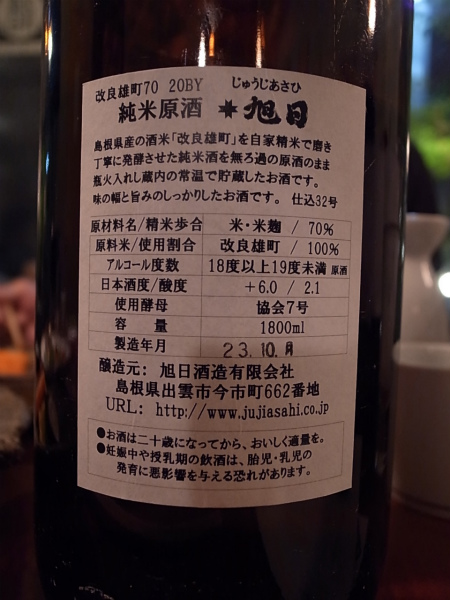 改良雄町70 20BY じゅうじあさひ
純米原酒 旭日
島根県産の酒米「改良雄町」を自家精米で磨き
丁寧に発酵させた純米酒を無ろ過の原酒のまま
瓶火入れし蔵内の常温で貯蔵したお酒です。
味の幅と旨みのしっかりしたお酒です。 仕込32号
原材料名/精米歩合 米・米麹 / 70%
原料米/使用割合 改良雄町 / 100%
アルコール度数 18度以上19度未満 原酒
日本酒度/酸度 +6.0 / 2.1
使用酵母 協会7号
容量 1800ml
製造年月 23.10.月
醸造元: 旭日酒造有限会社
島根県出雲市今市町662番地
URL: http://www.jujiasahi.co.jp
●お酒は二十歳になってから、おいしく適量を。
●妊娠中や授乳期の飲酒は、胎児・乳児の
発育に悪影響を与える恐れがあります。